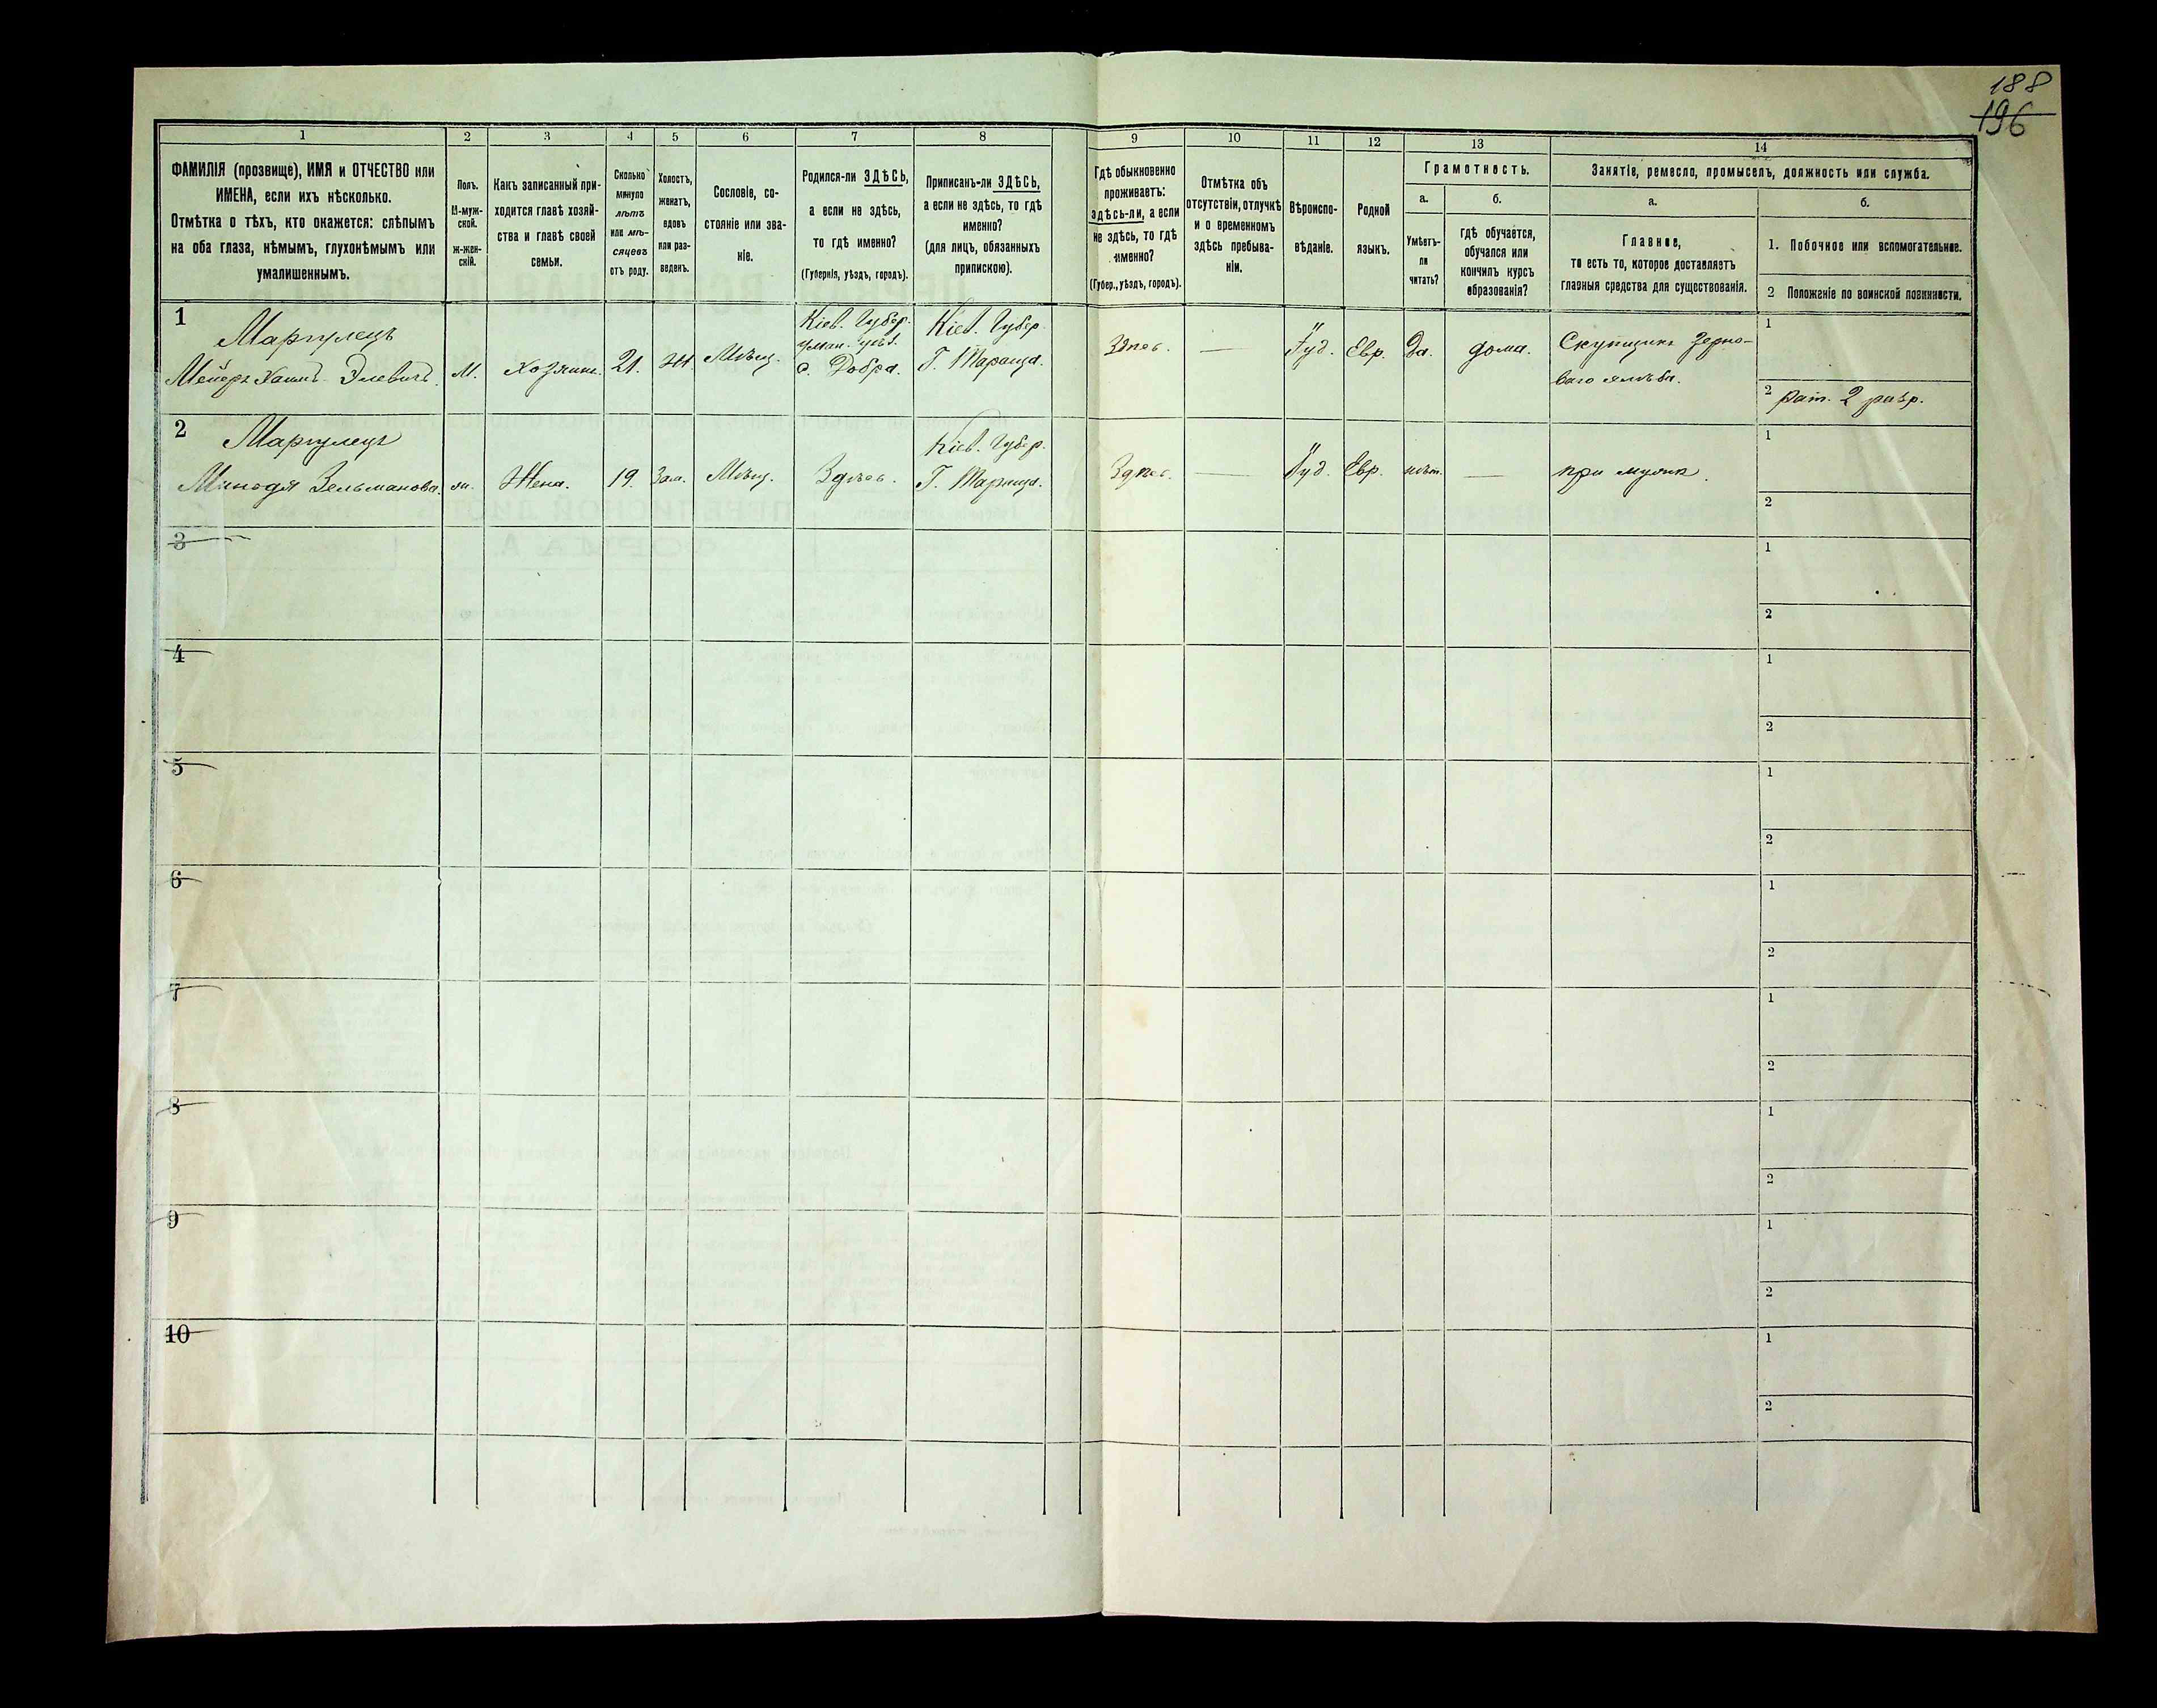 188
196
1
2
3
4
5
6
7
8
9
10
11
12
13
14
ФАМИЛІЯ (прозвище), ИМЯ и ОТЧЕСТВО или
ИМЕНА, если ихъ нѣсколько.
Отмѣтка о тѣхъ, кто окажется: слѣпымъ
на оба глаза, нѣмымъ, глухонѣмымъ или
умалишеннымъ.
Полъ.
М-муж-
ской.
ж-жен-
скій.
Какъ записанный при-
ходится главѣ хозяй-
ства и главѣ своей
семьи.
Сколько
минуло
лѣтъ
или мѣ-
сяцевъ
отъ роду.
Холостъ,
женатъ,
вдовъ
или раз-
веденъ.
Сословіе, со-
стояніе или зва-
ніе.
Родился-ли ЗДѢСЬ,
а если не здѣсь,
то гдѣ именно?
(Губернія, уѣздъ, городъ).
Приписанъ-ли ЗДѢСЬ,
а если не здѣсь, то гдѣ
именно?
(для лицъ, обязанныхъ
припискою).
Гдѣ обыкновенно
проживаетъ:
здѣсь-ли, а если
не здѣсь, то гдѣ
именно?
(Губер., уѣздъ, городъ).
Отмѣтка объ
отсутствіи, отлучкѣ
и о временномъ
здѣсь пребыва-
ніи.
Вѣроиспо-
вѣданіе.
Родной
языкъ.
Грамотность.
а.
Умѣетъ-
ли
читать?
б.
гдѣ обучается,
обучался или
кончилъ курсъ
образованія?
Занятіе, ремесло, промыселъ, должность или служба.
а.
Главное,
то есть то, которое доставляетъ
главныя средства для существованія.
б.
1. Побочное или вспомогательное.
2 Положеніе по воинской повинности.
1
Маргулецъ
Мейеръ Хаимъ Элевичъ.
М.
Хозяинъ.
21.
Ж.
Мѣщ.
Кіев. Губер.
Уман. уѣз.
с. Добра.
Кіев. Губер.
Г. Тараща.
Здѣсь.
—
Іуд.
Евр.
Да.
дома.
Скупщикъ зерно-
ваго хлѣба.
1
2 Рат. 2 разр.
2
Маргулецъ
Зельманова.
ж.
Жена.
19.
Зам.
Мѣщ.
Здѣсь.
Кіев. Губер.
Г. Тараща.
Здѣсь.
—
Іуд.
Евр.
нѣт.
—
при мужѣ.
1
2
3
1
2
4
1
2
5
1
2
6
1
2
7
1
2
8
1
2
9
1
2
10
1
2